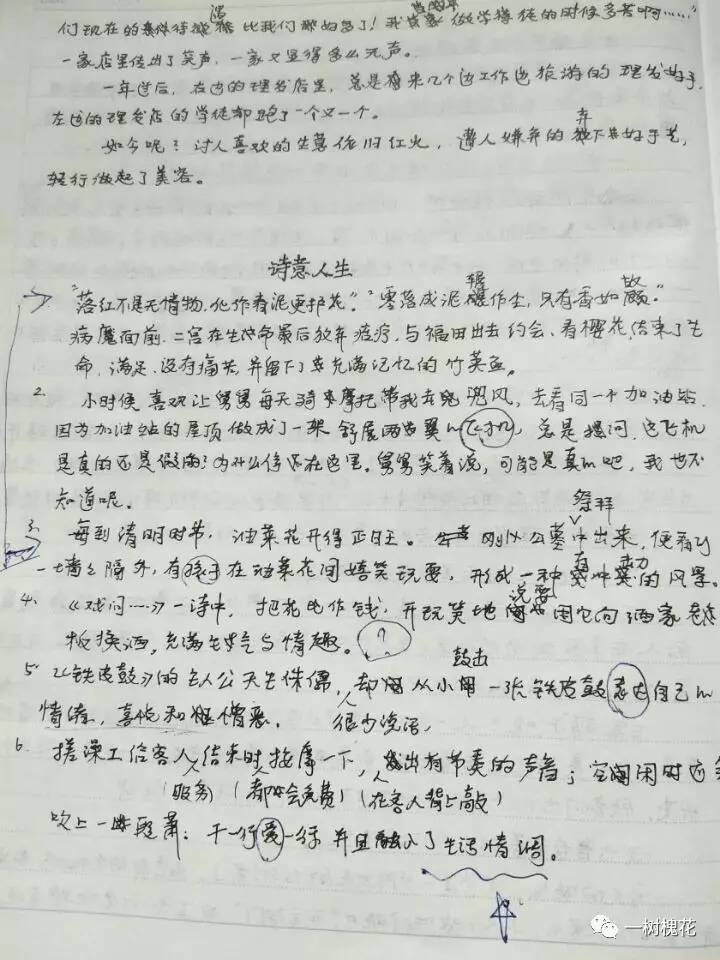 们现在的条件待遇比我们那好多了！我做学徒的时候多苦啊……”
一家店里传出了笑声，一家又显得多么无声。
一年过后，右边的理发店里，总是有来几个边工作边旅游的理发好手，
左边的理发店的学徒却跑了一个又一个。
如今呢？讨人喜欢的生意依旧红火，遭人嫌弃的放下好手艺，
轻行做起了美容。
诗意人生
“落红不是无情物，化作春泥更护花。”“零落成泥碾作尘，只有香如故。”
病魔面前，二宫在生命最后放弃治疗，与福田出去约会、看樱花，结束了生
命，满足、没有痛苦，并留下了充满记忆的竹荚鱼。
2. 小时候喜欢让舅舅每天骑摩托带我去兜风，去看同一个加油站，
因为加油站的屋顶做成了一架舒展两翼的飞机，总是提问，这飞机
是真的还是假的？为什么停在这里。舅舅笑着说，可能是真的吧，我也不
知道呢。
3. 每到清明时节，油菜花开得正旺。从公墓中祭拜出来，便看到
一墙之隔外，有孩子在油菜花间嬉笑玩耍，形成一种的风景。
4. 《戏问……》一诗中，把花比作钱，开玩笑地说要用它向酒家
换酒，充满生气与情趣。？
5. 《铁皮鼓》的主人公天生侏儒，人很少说话，却从小用一张铁皮鼓鼓击表达自己的
情绪，喜悦和憎恶。
6. 搓澡工给客人服务结束时，都会免费按摩一下，在客人背上敲出有节奏的声音；空闲时还会
吹上一段箫；干一行爱一行并且融入了生活情调。
一树槐花